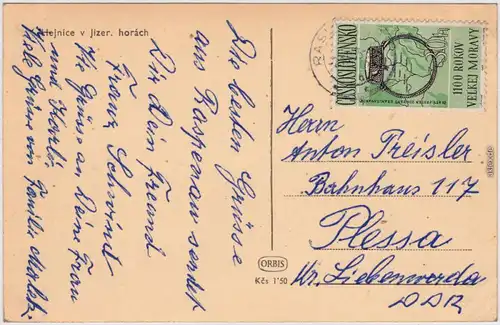 Hejnice v Jizer. horách
Die besten Grüsse
aus Raspenau sendet
Dir Dein Freund
Franz Schwindt
Viele Grüsse an Deine Frau
und
Viele Grüsse von Familie
ORBIS
Kčs 1'50
RAS
ČESKOSLOVENSKO
1100 ROKOV
VEĽKEJ MORAVY
Herrn
Anton Preisler
Bahnhaus 117
Plessa
Kr. Liebenwerda
DDR